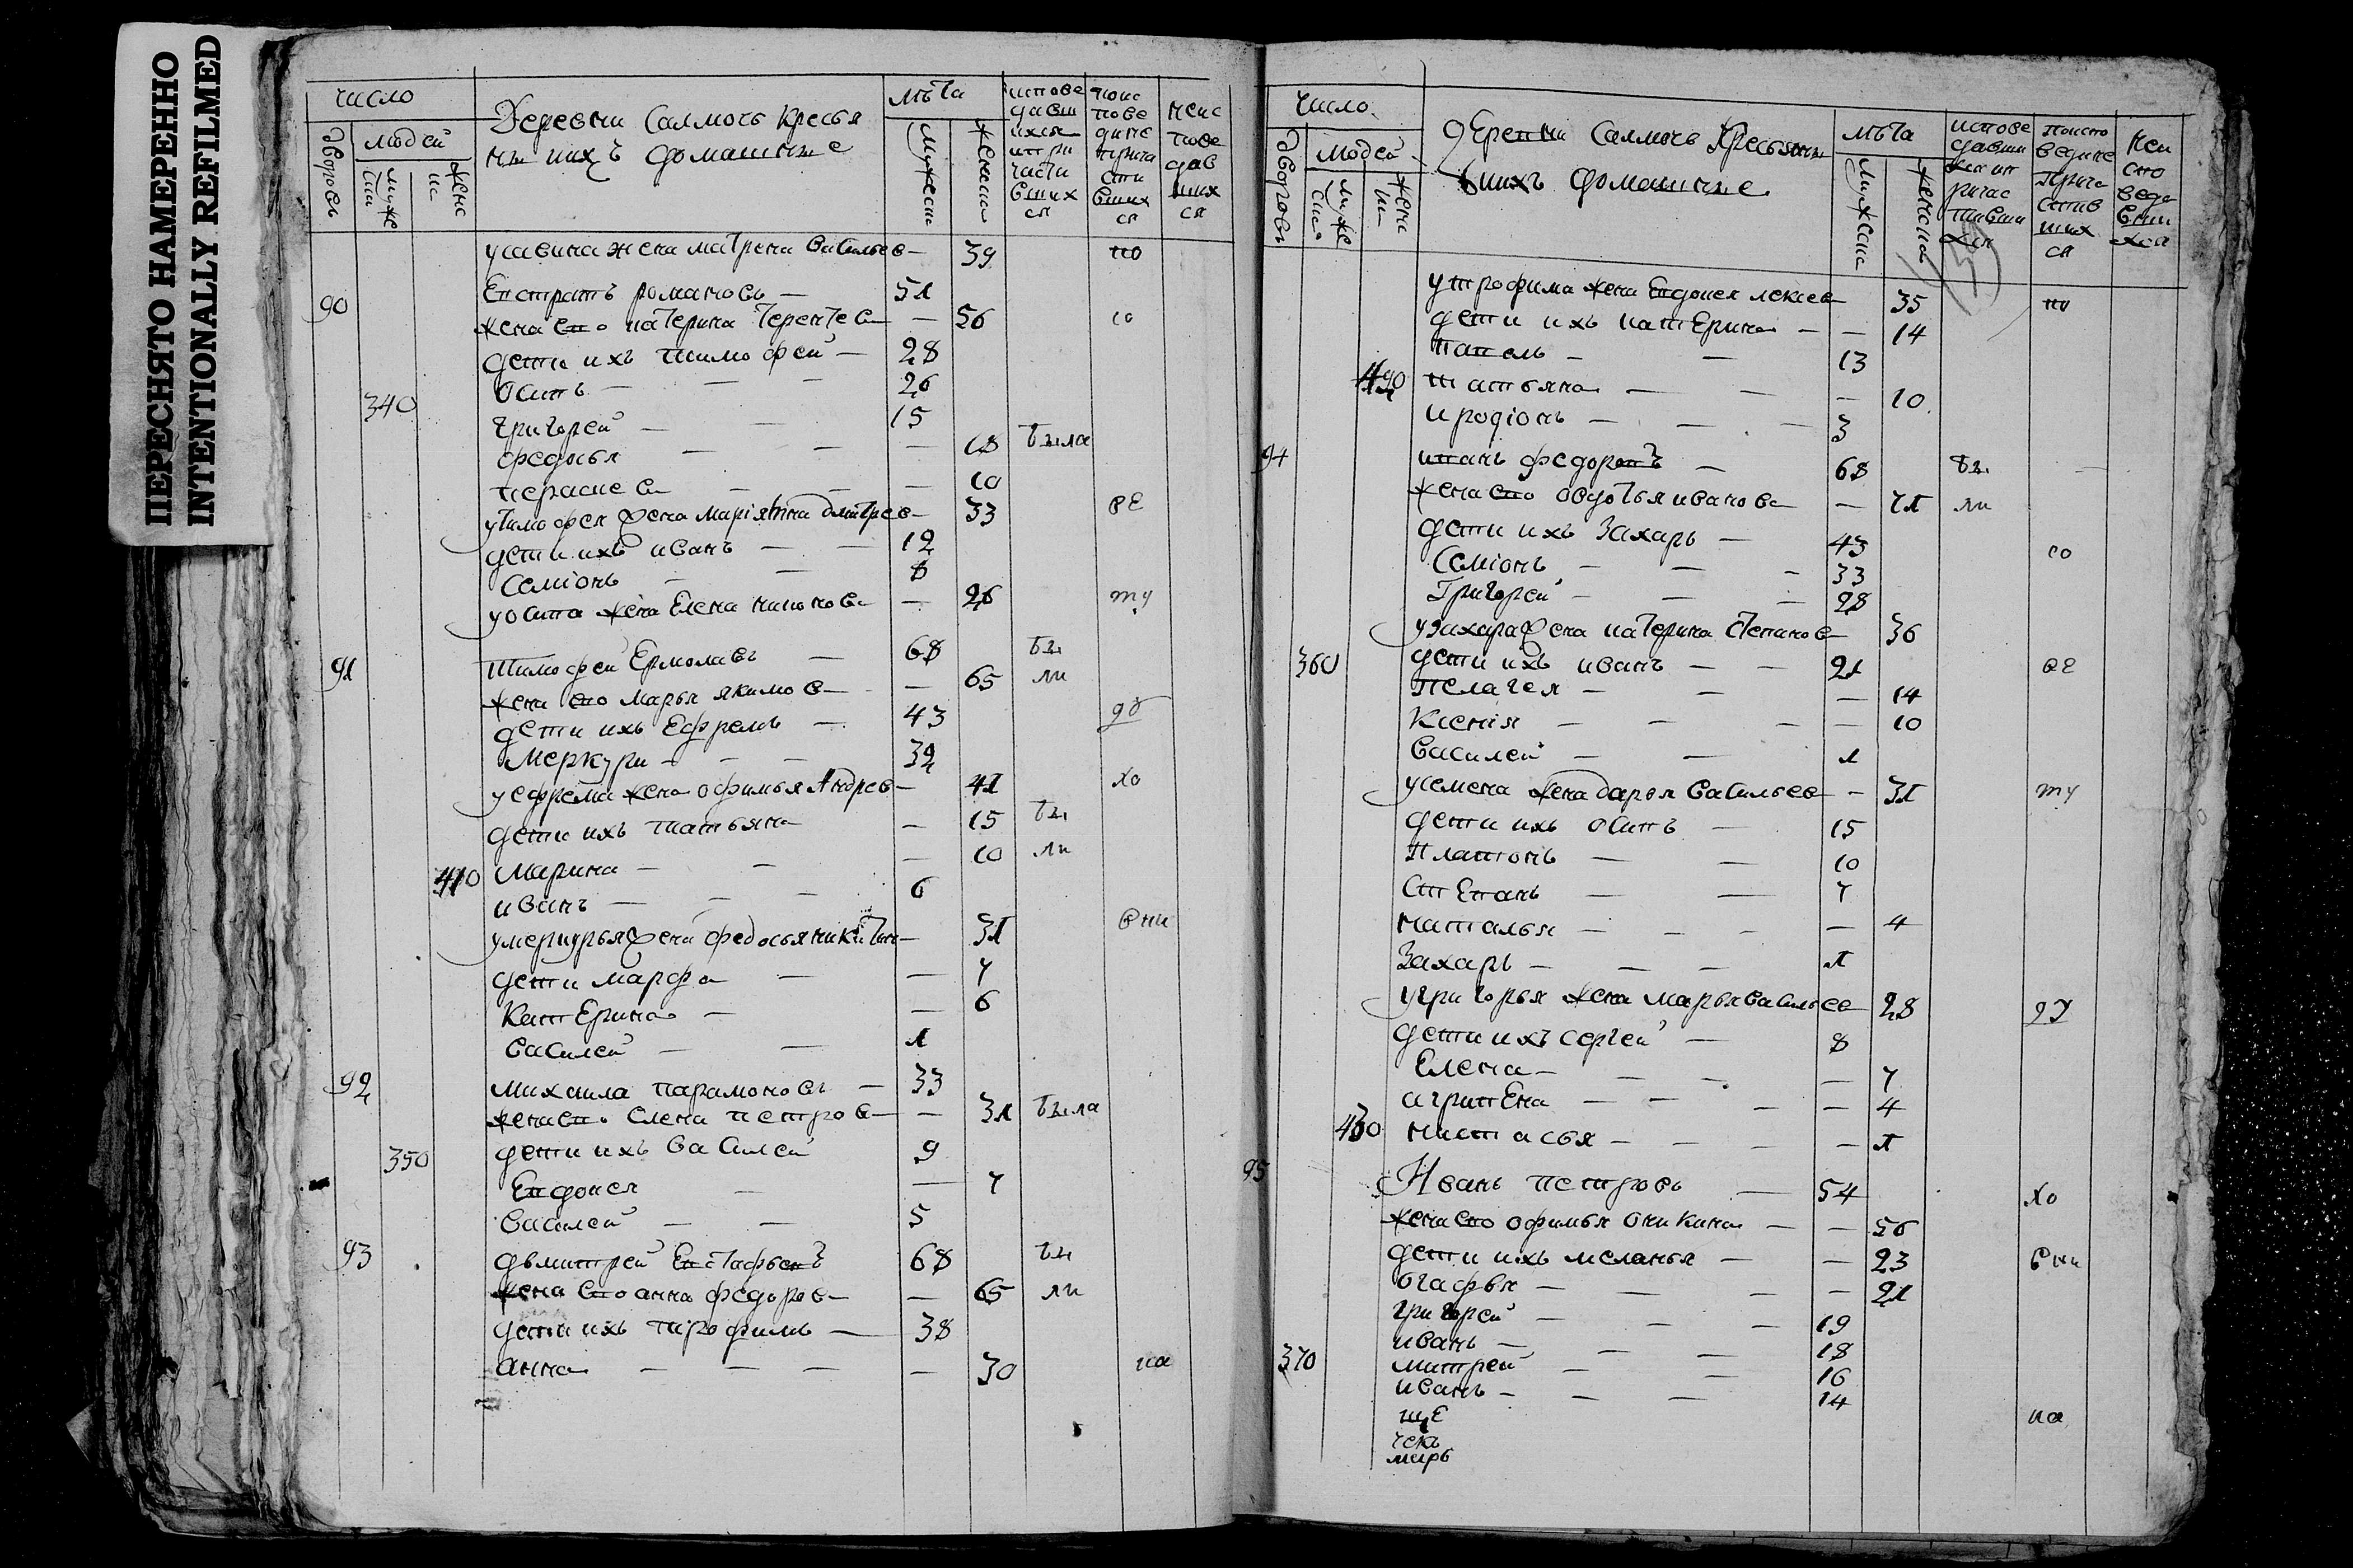 ПЕРЕСНЯТО НАМЕРЕННО
INTENTIONALLY REFILMED
число
Деревни Саллмочь Кресья
не ихъ домашние
лѣта
дворовъ
людей
муже
жене
мужеска
женска
испове
давши
ихся
ипри
части
вших
ся
поис
пове
дине
прича
сти
вших
ся
неис
пове
дав
ших
ся
усавина жена матрена васильев — 39 по
90 Евстратъ романовъ — 51
жена ево катерина терентев — — 56 со
дети ихъ тимофей — 28
осипъ — — — 26
340 григорей — — — 15
федосья — — — 18 была
пераскев — — — 10
утимофея жена марiяна дмитрев — 33 ве
дети ихъ иванъ — — 12
Семiонъ — — 8
уосипа жена Елена никонов — — 26 ту
91 тимофей Ермолавъ — 68 бы
жена ево марья якимов — — 65 ли
дети ихъ Ефремъ — 43 др
меркури — — — 32
уефрема жена офимья Андрев — 41 хо
дети ихъ татьяна — 15 бы
410 марина — — — 10 ли
иванъ — — — 6
умеркурья жена федосья никитин — 31 вни
дети марфа — — 7
Катерина — — 6
василей — — 1
92 михаила парамоновъ — 33
жена ево елена петров — — 31 была
350 дети ихъ василей 9
Евдокея — — 7
василей — — 5
93 дьмитрей Евстафьевъ 68 бы
жена ево анна федоров — — 65 ли
дети ихъ трофимъ — 38
анна — — — — 30 ка
число
дЕревни Саллмочь Кресьяне
вихъ домашние
лѣта
дворовъ
людей
муже
жене
мужеска
женска
испове
давши
хся ип
ричас
тивши
хся
поиспо
ведине
прича
стив
ших
ся
неи
спо
веда
вши
хся
утрофима жена Евдокея алексев — 35 по
дети ихъ катЕрина — — 14
павель — — 13
420 татьяна — — — 10
иродiонъ — — — 3
94 иванъ федоровъ — 68 бы
жена ево овдотья иванова — 71 ли
дети ихъ Захаръ — 43 со
Семiонъ — — — 33
Григорей — — — 28
узахара жена катерина степанов — 36
360 дети ихъ иванъ — — 21 ве
пелагея — — — 14
Ксенiя — — — — 10
василей — — 1
усемена жена дарья васильев — — 31 ту
дети ихъ осипъ — 15
платонъ — — 10
СтЕпанъ — — 7
наталья — — — — 4
Захаръ — — — 1
угригорья жена марья васильев — 28 др
дети ихъ сергей — 8
Елена — — — — 7
агрипЕна — — — — 4
430 настасья — — — — 1
95 Иванъ петровъ — 54 хо
жена ево офимья оникина — — 56
дети ихъ меланья — — 23 вни
огафья — — — — 21
григорей — — — 19
иванъ — — — 18
370 митрей — — 16
иванъ — — — 14
ка